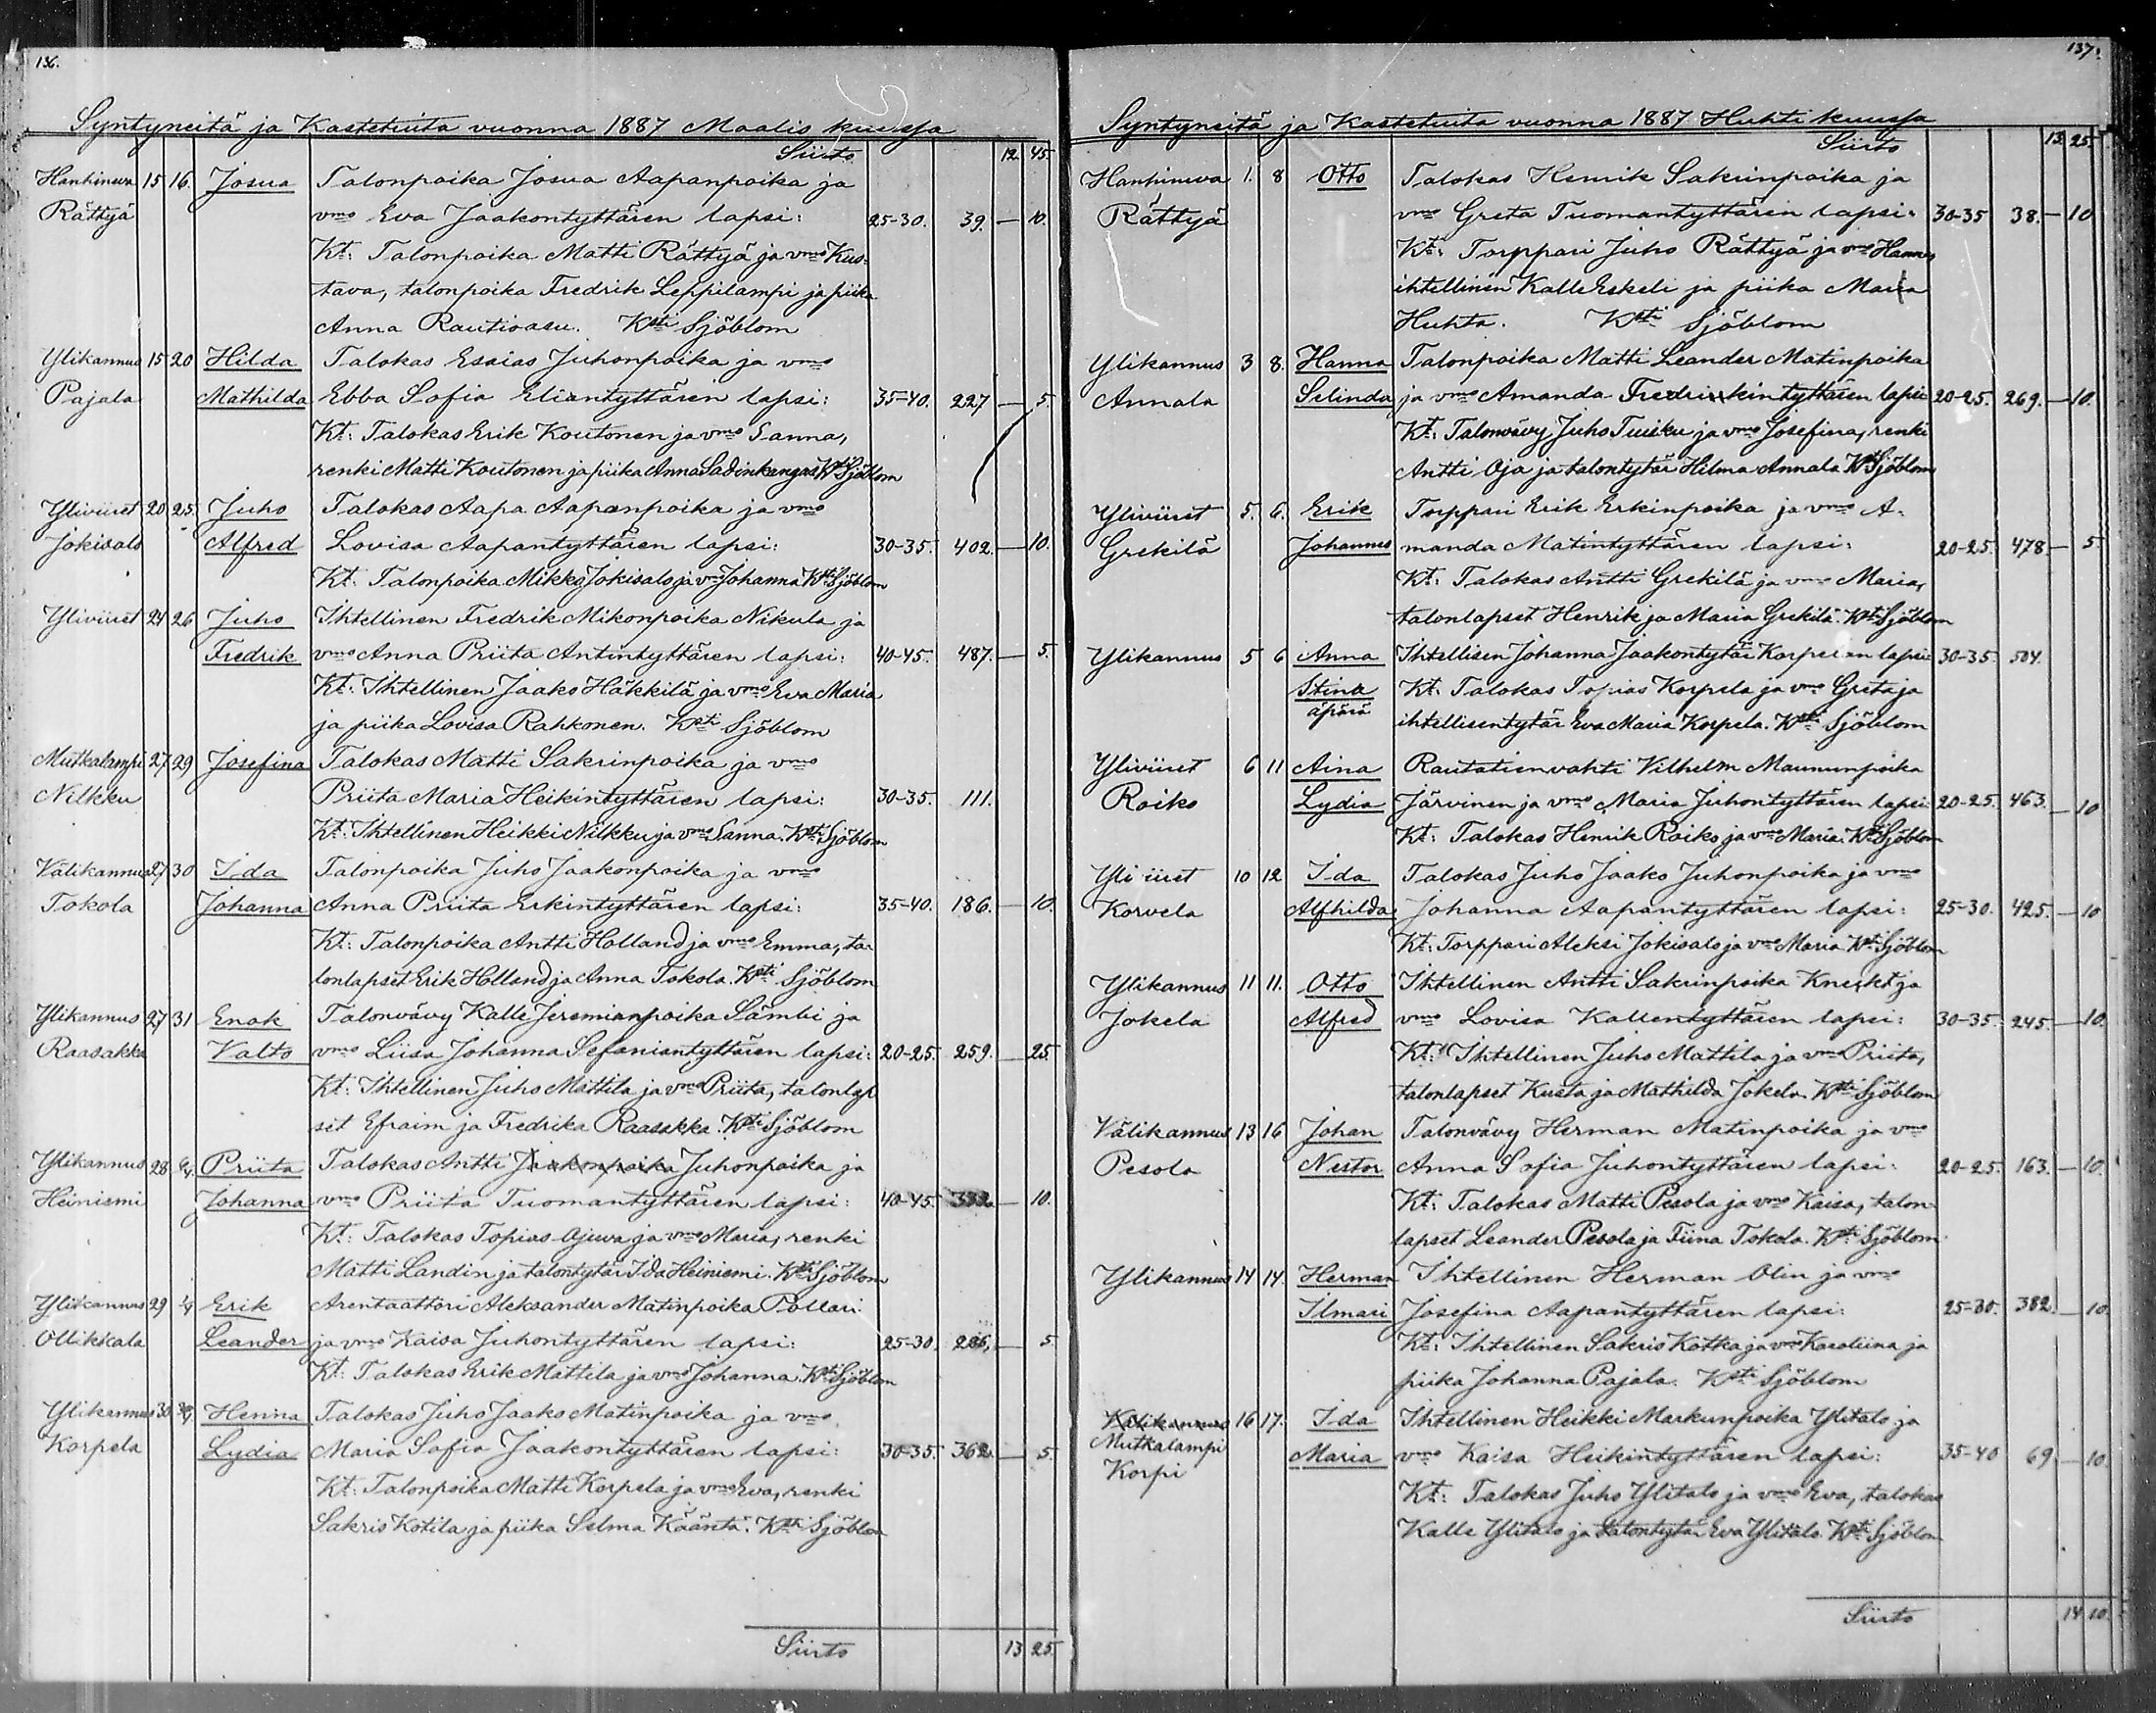 136.
Syntyneitä ja Kastetuita vuonna 1887 Maalis kuussa
Siirto 12. 45.
Hanhineva 15 16. Josua Talonpoika Josua Aapanpoika ja
Rättyä vmo Eva Jaakontyttären lapsi: 25-30. 39. — 10.
Kt: Talonpoika Matti Rättyä ja vmo Kus-
tava, talonpoika Fredrik Leppilampi ja piika
Anna Rautioasu. Ksti Sjöblom
Ylikannus 15 20 Hilda Talokas Esaias Juhonpoika ja vmo
Pajala Mathilda Ebba Sofia Eliantyttären lapsi: 35-40. 227 — 5.
Kt: Talokas Erik Koutonen ja vmo Sanna,
renki Matti Koutonen ja piika Anna Sadinkangas Kst Sjöblom
Yliviiret 20 25. Juho Talokas Aapa Aapanpoika ja vmo
Jokisalo Alfred Lovisa Aapantyttären lapsi: 30-35. 402. — 10.
Kt: Talonpoika Mikko Jokisalo ja vmo Johanna Ksti Sjöblom
Yliviiret 24 26 Juho Ihtellinen Fredrik Mikonpoika Nikula ja
Fredrik vmo Anna Priita Antintyttären lapsi: 40-45. 487. — 5.
Kt: Ihtellinen Jaako Häkkilä ja vmo Eva Maria
ja piika Lovisa Rahkonen. Ksti Sjöblom
Mutkalampi 27 29 Josefina Talokas Matti Sakrinpoika ja vmo
Nilkku Priita Maria Heikintyttären lapsi: 30-35. 111.
Kt: Ihtellinen Heikki Nilkku ja vmo Sanna. Ksti Sjöblom
Välikannus 27 30 Ida Talonpoika Juho Jaakonpoika ja vmo
Tokola Johanna Anna Priita Erkintyttären lapsi: 35-40. 186. — 10.
Kt: Talonpoika Antti Holland ja vmo Emma, ta-
lonlapset Erik Holland ja Anna Tokola. Ksti Sjöblom
Ylikannus 27 31 Enok Talonvävy Kalle Jeremianpoika Sämbi ja
Raasakka Valto vmo Liisa Johanna Sefaniantyttären lapsi: 20-25. 259. — 25.
Kt: Ihtellinen Juho Mattila ja vmo Priita, talonlap
set Efraim ja Fredrika Raasakka. Ksti Sjöblom
Ylikannus 28 Priita Talokas Antti Jaakonpoika Juhonpoika ja
Heiniemi Johanna vmo Priita Tuomantyttären lapsi: 40-45. — 10.
Kt: Talokas Topias Ojuva ja vmo Maria, renki
Matti Landin ja talontytär Ida Heiniemi. Ksti Sjöblom
Ylikannus 29 Erik Arentaattori Aleksander Matinpoika Pollari
Ollikkala Leander ja vmo Kaisa Juhontyttären lapsi: 25-30. — 5.
Kt: Talokas Erik Mattila ja vmo Johanna. Ksti Sjöblom
Ylikannus 30 Henna Talokas Juho Jaako Matinpoika ja vmo
Korpela Lydia Maria Sofia Jaakontyttären lapsi: 30-35. 362. — 5.
Kt: Talonpoika Matti Korpela ja vmo Eva, renki
Sakris Kotila ja piika Selma Kääntä. Ksti Sjöblom
Siirto 13 25.
137.
Syntyneitä ja Kastetuita vuonna 1887 Huhti kuussa
Siirto 13 25.
Hanhineva 1. 8 Otto Talokas Henrik Sakrinpoika ja
Rättyä vmo Greta Tuomantyttären lapsi: 30-35 38. — 10
Kt: Torppari Juho Rättyä ja vmo Hanna
ihtellinen Kalle Eskeli ja piika Maria
Huhta. Ksti Sjöblom
Ylikannus 3 8. Hanna Talonpoika Matti Leander Matinpoika
Annala Selinda ja vmo Amanda Fredrinkintyttären lapsi 20-25. 269. — 10.
Kt: Talonvävy Juho Tuisku ja vmo Josefina, renki
Antti Oja ja talontytär Hilma Annala Kst Sjöblom
Yliviiret 5. 6. Erik Torppari Erik Erkinpoika ja vmo A-
Grekilä Johannes manda Matintyttären lapsi: 20-25. 478 — 5.
Kt: Talokas Antti Grekilä ja vmo Maria,
talonlapset Henrik ja Maria Grekilä. Ksti Sjöblom
Ylikannus 5 6 Anna Ihtellisen Johanna Jaakontytär Korpelan lapsi 30-35. 504.
Stina Kt: Talokas Topias Korpela ja vmo Greta ja
äpärä ihtellisentytär Eva Maria Korpela. Ksti Sjöblom
Yliviiret 6 11 Aina Rautatienvahti Vilhelm Maununpoika
Roiko Lydia Järvinen ja vmo Maria Juhontyttären lapsi 20-25. 463. — 10
Kt: Talokas Henrik Roiko ja vmo Maria. Kst Sjöblom
Yli iiret 10 12 Ida Talokas Juho Jaako Juhonpoika ja vmo
Korvela Alfhilda Johanna Aapantyttären lapsi: 25-30. 425. — 10
Kt: Torppari Aleksi Jokisalo ja vmo Maria Kst Sjöblom
Ylikannus 11 11. Otto Ihtellinen Antti Sakrinpoika Knekt ja
Jokela Alfred vmo Lovisa Kallentyttären lapsi: 30-35. 245. — 10.
Kt: Ihtellinen Juho Mattila ja vmo Priita,
talonlapset Kusta ja Mathilda Jokela. Ksti Sjöblom
Välikannus 13 16 Johan Talonvävy Herman Matinpoika ja vmo
Pesola Nestor Anna Sofia Juhontyttären lapsi: 20-25. 163. — 10.
Kt: Talokas Matti Pesola ja vmo Kaisa, talon-
lapset Leander Pesola ja Tiina Tokola. Ksti Sjöblom
Ylikannus 14 14. Herman Ihtellinen Herman Olin ja vmo
Ilmari Josefina Aapantyttären lapsi: 25-30. 382. — 10.
Kt: Ihtellinen Sakris Kotka ja vmo Karoliina ja
piika Johanna Pajala. Ksti Sjöblom
16 17. Ida Ihtellinen Heikki Markunpoika Ylitalo ja
Mutkalampi Maria vmo Kaisa Heikintyttären lapsi: 35-40 69. — 10.
Korpi
Kt: Talokas Juho Ylitalo ja vmo Eva, talokas
Kalle Ylitalo ja talontytär Eva Ylitalo. Ksti Sjöblom
Siirto 14 10.